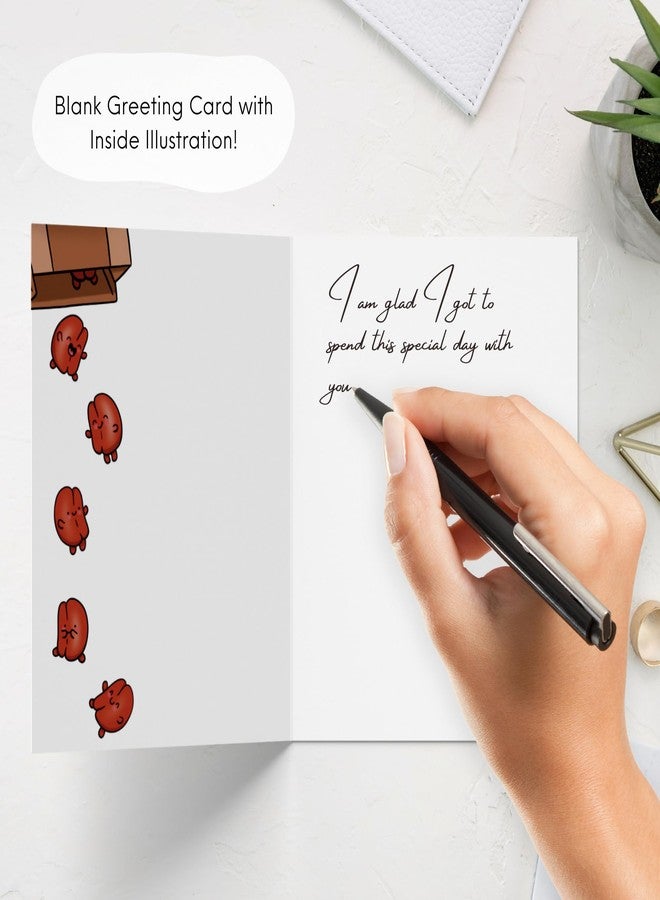 Blank Greeting Card with
Inside Illustration!
I am glad I got to
spend this special day with
you